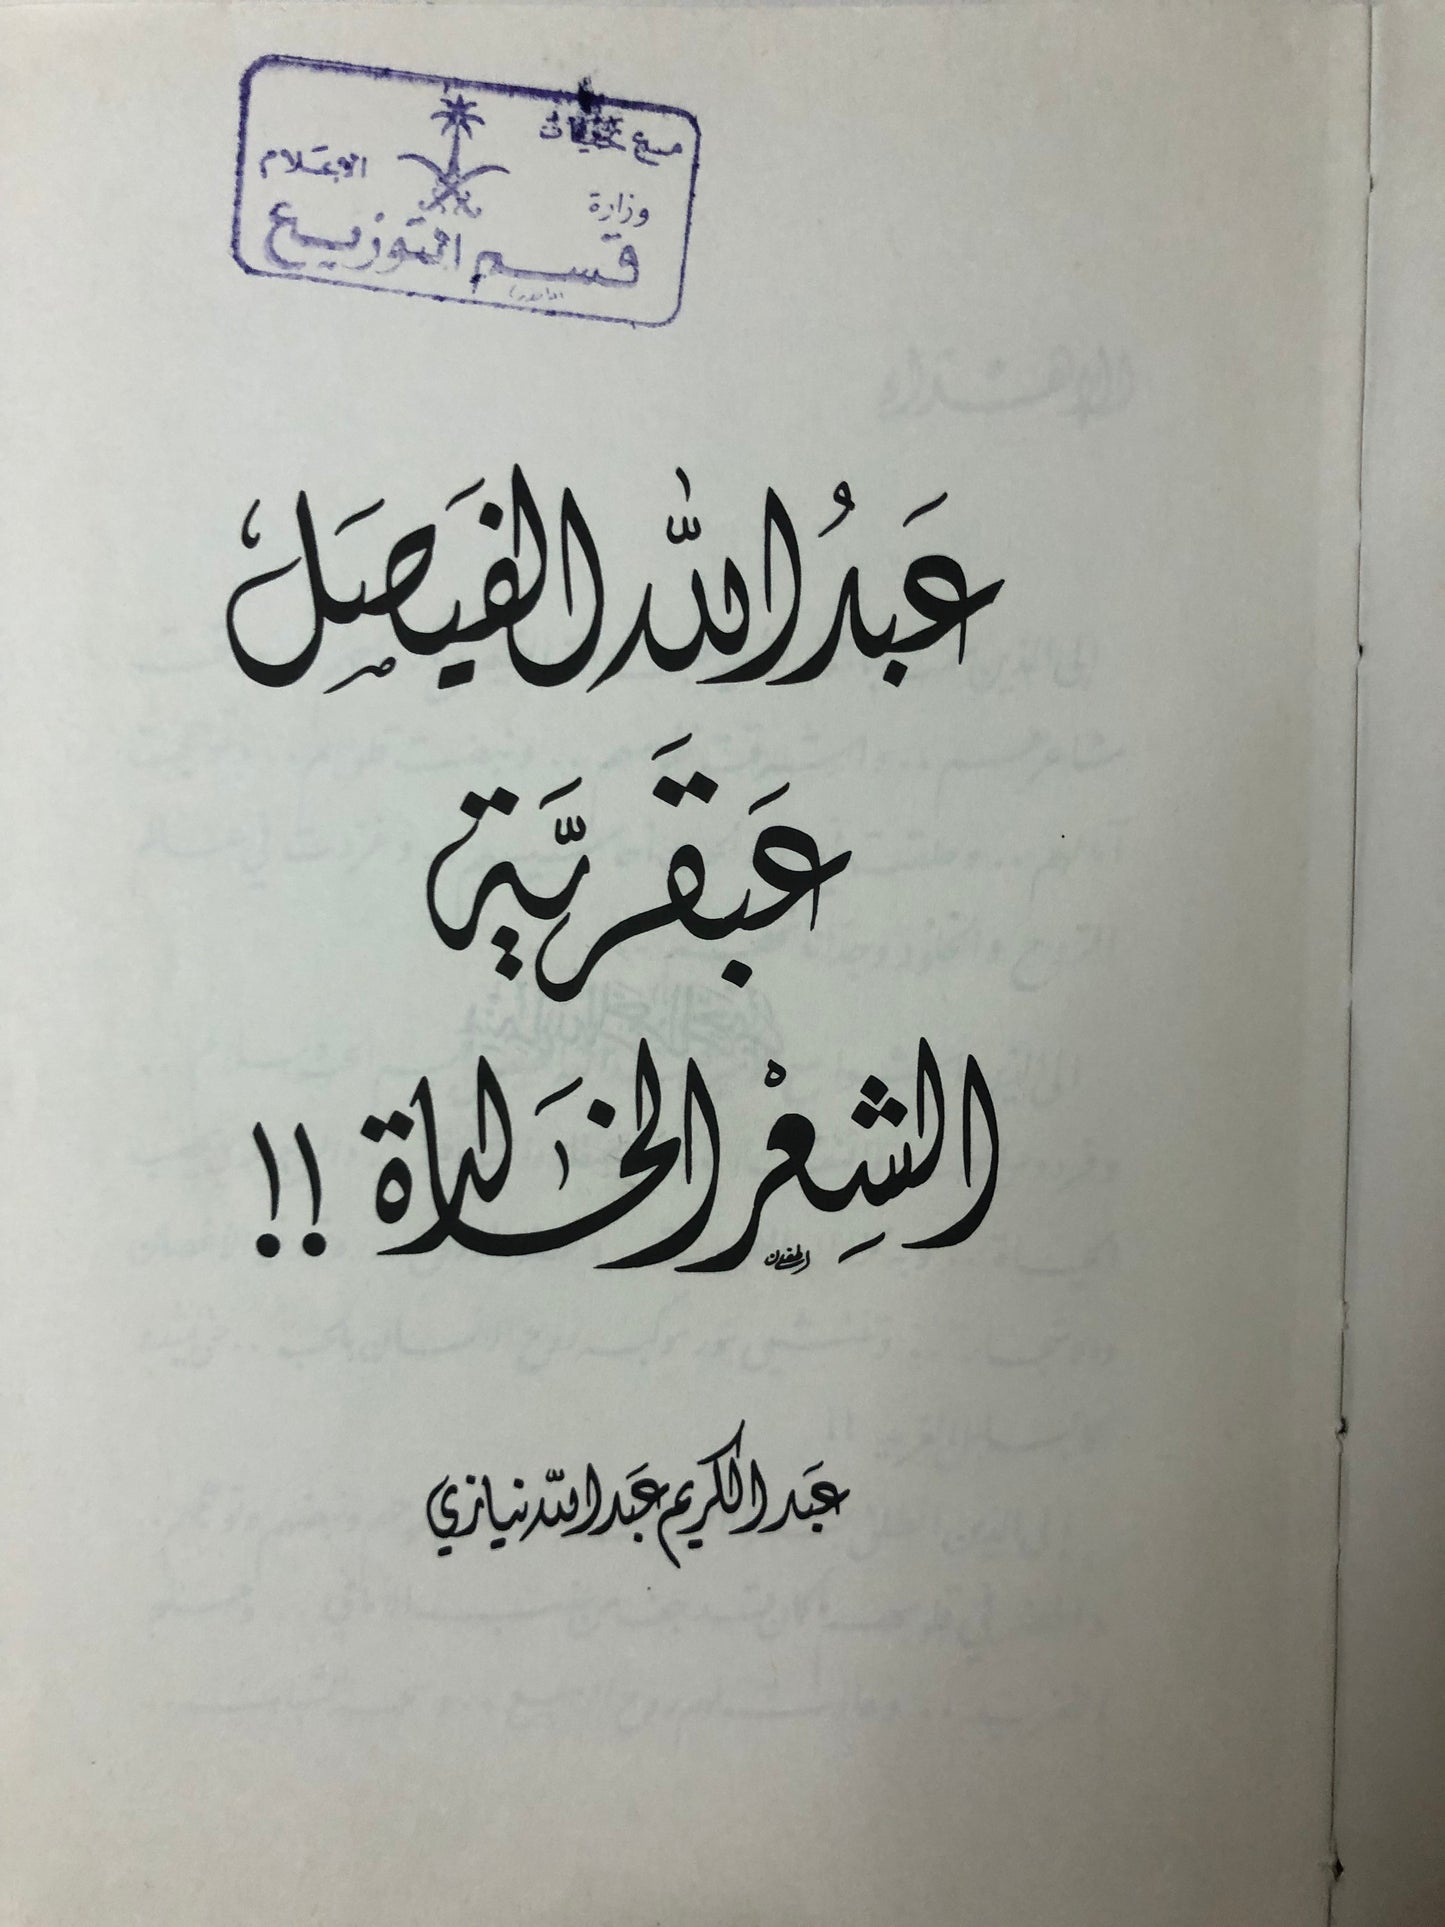 مع تحيات
وزارة الإعلام
قسم التوزيع
عَبدُ الله الفَيصَل
عَبقَريَّة
الشِعْر الخَالدة !!
عَبد الكريم عَبد الله نيازي